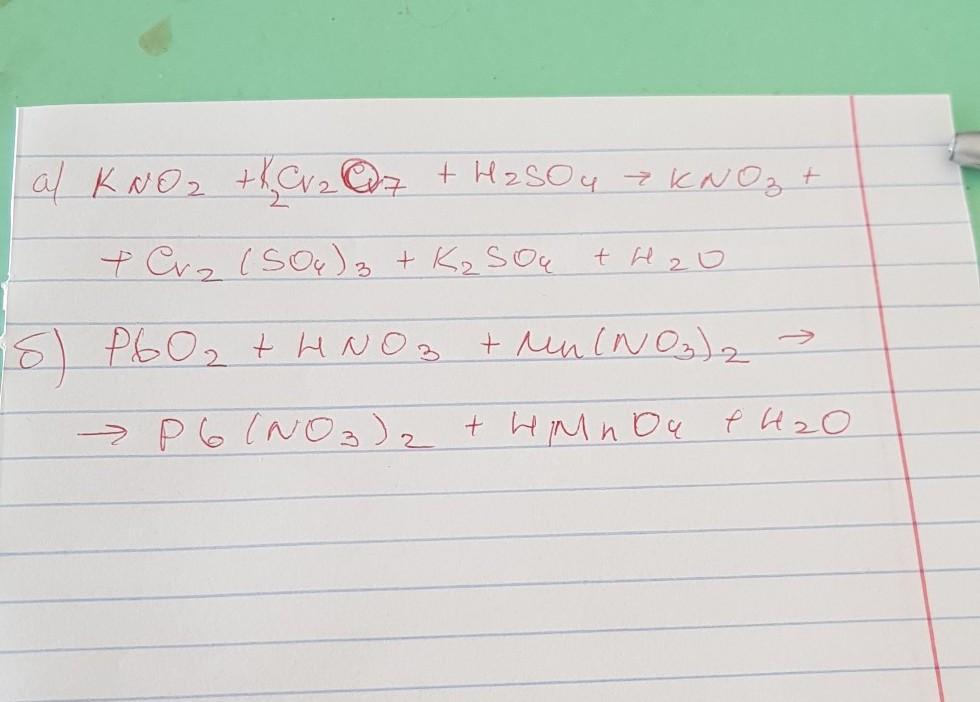 а) KNO₂ + K₂Cr₂O₇ + H₂SO₄ → KNO₃ +
+ Cr₂(SO₄)₃ + K₂SO₄ + H₂O
б) PbO₂ + HNO₃ + Mn(NO₃)₂ →
→ Pb(NO₃)₂ + HMnO₄ + H₂O